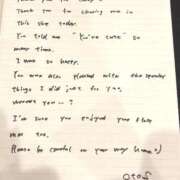 Thank you for choosing me in
this shop today.
You told me "You're cute" so
many times.
I was so happy.
You were also pleased with the
things I did just for you,
weren't you ~ ?
I'm sure you enjoyed your
too.
Please be careful on your way home :)